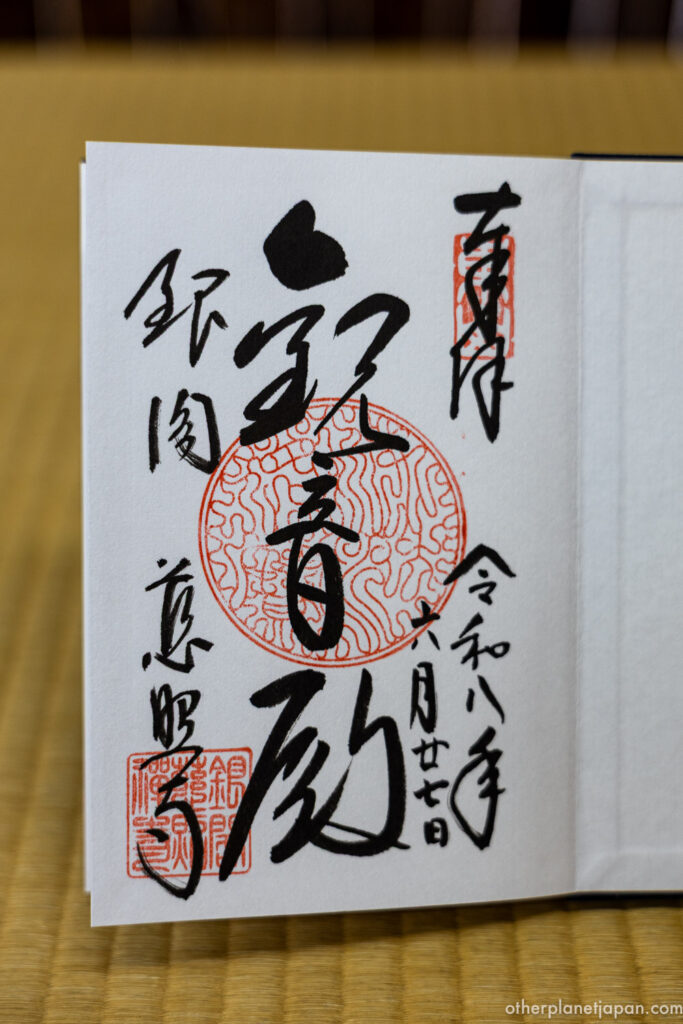 奉拝
令和八年
六月廿七日
観音殿
銀閣
慈照寺
銀閣
慈照
禅寺
otherplanetjapan.com